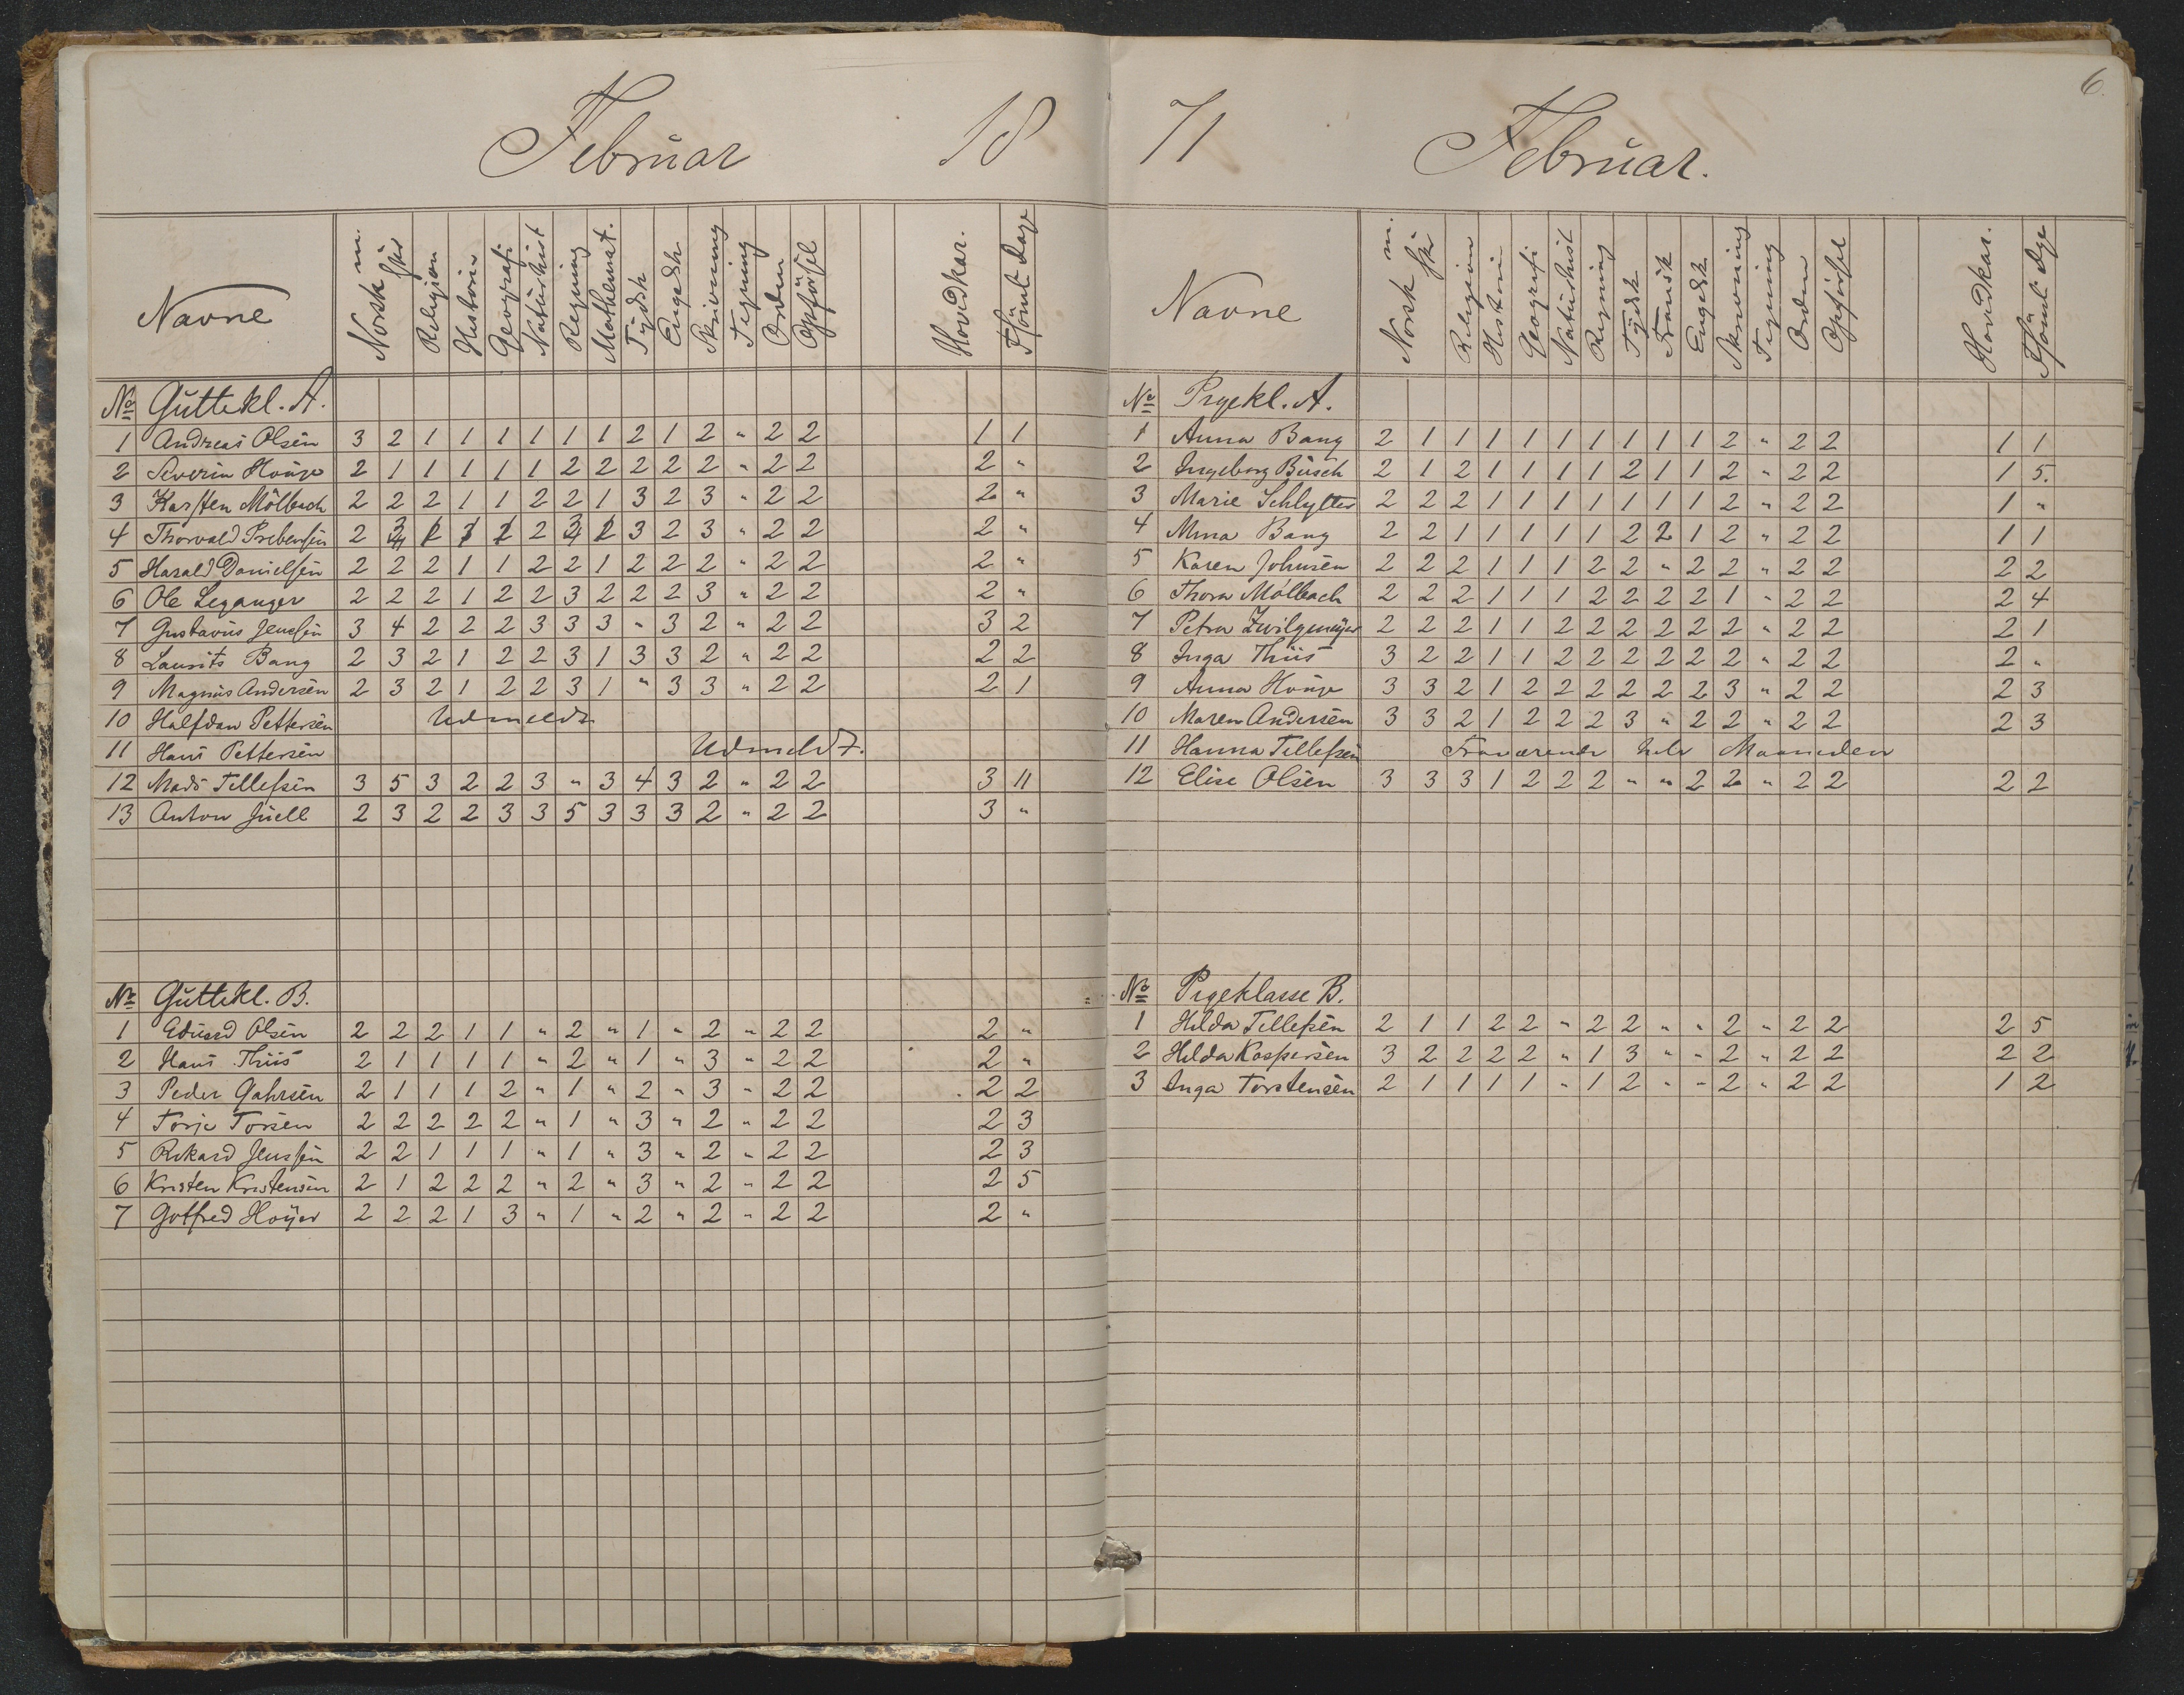 Februar 18
Navne Norsk m. skr Religion Historie Geografi Naturhist Regning Mathemat. Tydsk Engelsk Skrivning Tegning Orden Opførsel Hovedkar. Fsömt Dage
No Guttekl. A.
1 Andreas Olsen 3 2 1 1 1 1 1 1 2 1 2 " 2 2 1 1
2 Severin Houge 2 1 1 1 1 1 2 2 2 2 2 " 2 2 2 "
3 Karsten Mölbach 2 2 2 1 1 2 2 1 3 2 3 " 2 2 2 "
4 Thorvald Prebensen 2 2 3 2 3 " 2 2 2 "
5 Harald Danielsen 2 2 2 1 1 2 2 1 2 2 2 " 2 2 2 "
6 Ole Leganger 2 2 2 1 2 2 3 2 2 2 3 " 2 2 2 "
7 Gustavus Jensen 3 4 2 2 2 3 3 3 " 3 2 " 2 2 3 2
8 Laurits Bang 2 3 2 1 2 2 3 1 3 3 2 " 2 2 2 2
9 Magnus Andersen 2 3 2 1 2 2 3 1 " 3 3 " 2 2 2 1
10 Halfdan Pettersen Udmeldt
11 Hans Pettersen Udmeldt.
12 Mads Tellefsen 3 5 3 2 2 3 " 3 4 3 2 " 2 2 3 11
13 Anton Juell 2 3 2 2 3 3 5 3 3 3 2 " 2 2 3 "
No Guttekl. B.
1 Eduard Olsen 2 2 2 1 1 " 2 " 1 " 2 " 2 2 2 "
2 Hans Thiis 2 1 1 1 1 " 2 " 1 " 3 " 2 2 2 "
3 Peder Gahrsen 2 1 1 1 2 " 1 " 2 " 3 " 2 2 2 2
4 Torje Torsen 2 2 2 2 2 " 1 " 3 " 2 " 2 2 2 3
5 Rikard Jenssen 2 2 1 1 1 " 1 " 3 " 2 " 2 2 2 3
6 Kristen Kristensen 2 1 2 2 2 " 2 " 3 " 2 " 2 2 2 5
7 Gotfred Hoÿer 2 2 2 1 3 " 1 " 2 " 2 " 2 2 2 "
71 Februar. 6.
Navne Norsk m. skr Religion Historie Geografi Naturhist Regning Tydsk Fransk Engelsk Skrivning Tegning Orden Opførsel Hovedkar. Fsömt Dge
No Pigekl. A.
1 Anna Bang 2 1 1 1 1 1 1 1 1 1 2 " 2 2 1 1
2 Ingeborg Busch 2 1 2 1 1 1 1 2 1 1 2 " 2 2 1 5.
3 Marie Schlytter 2 2 2 1 1 1 1 1 1 1 2 " 2 2 1 "
4 Mina Bang 2 2 1 1 1 1 1 2 2 1 2 " 2 2 1 1
5 Karen Johnsen 2 2 2 1 1 1 2 2 " 2 2 " 2 2 2 2
6 Thora Mölbach 2 2 2 1 1 1 2 2 2 2 1 " 2 2 2 4
7 Petra Zwilgmeÿer 2 2 2 1 1 2 2 2 2 2 2 " 2 2 2 1
8 Inga Thiis 3 2 2 1 1 2 2 2 2 2 2 " 2 2 2 "
9 Anna Houge 3 3 2 1 2 2 2 2 2 2 3 " 2 2 2 3
10 Maren Andersen 3 3 2 1 2 2 2 3 " 2 2 " 2 2 2 3
11 Hanna Tellefsen Fraværende hele Maaneden
12 Elise Olsen 3 3 3 1 2 2 2 " " 2 2 " 2 2 2 2
No Pigeklasse B.
1 Hilda Tellefsen 2 1 1 2 2 " 2 2 " " 2 " 2 2 2 5
2 Hilda Kaspersen 3 2 2 2 2 " 1 3 " " 2 " 2 2 2 2
3 Inga Torstensen 2 1 1 1 1 " 1 2 " " 2 " 2 2 1 2